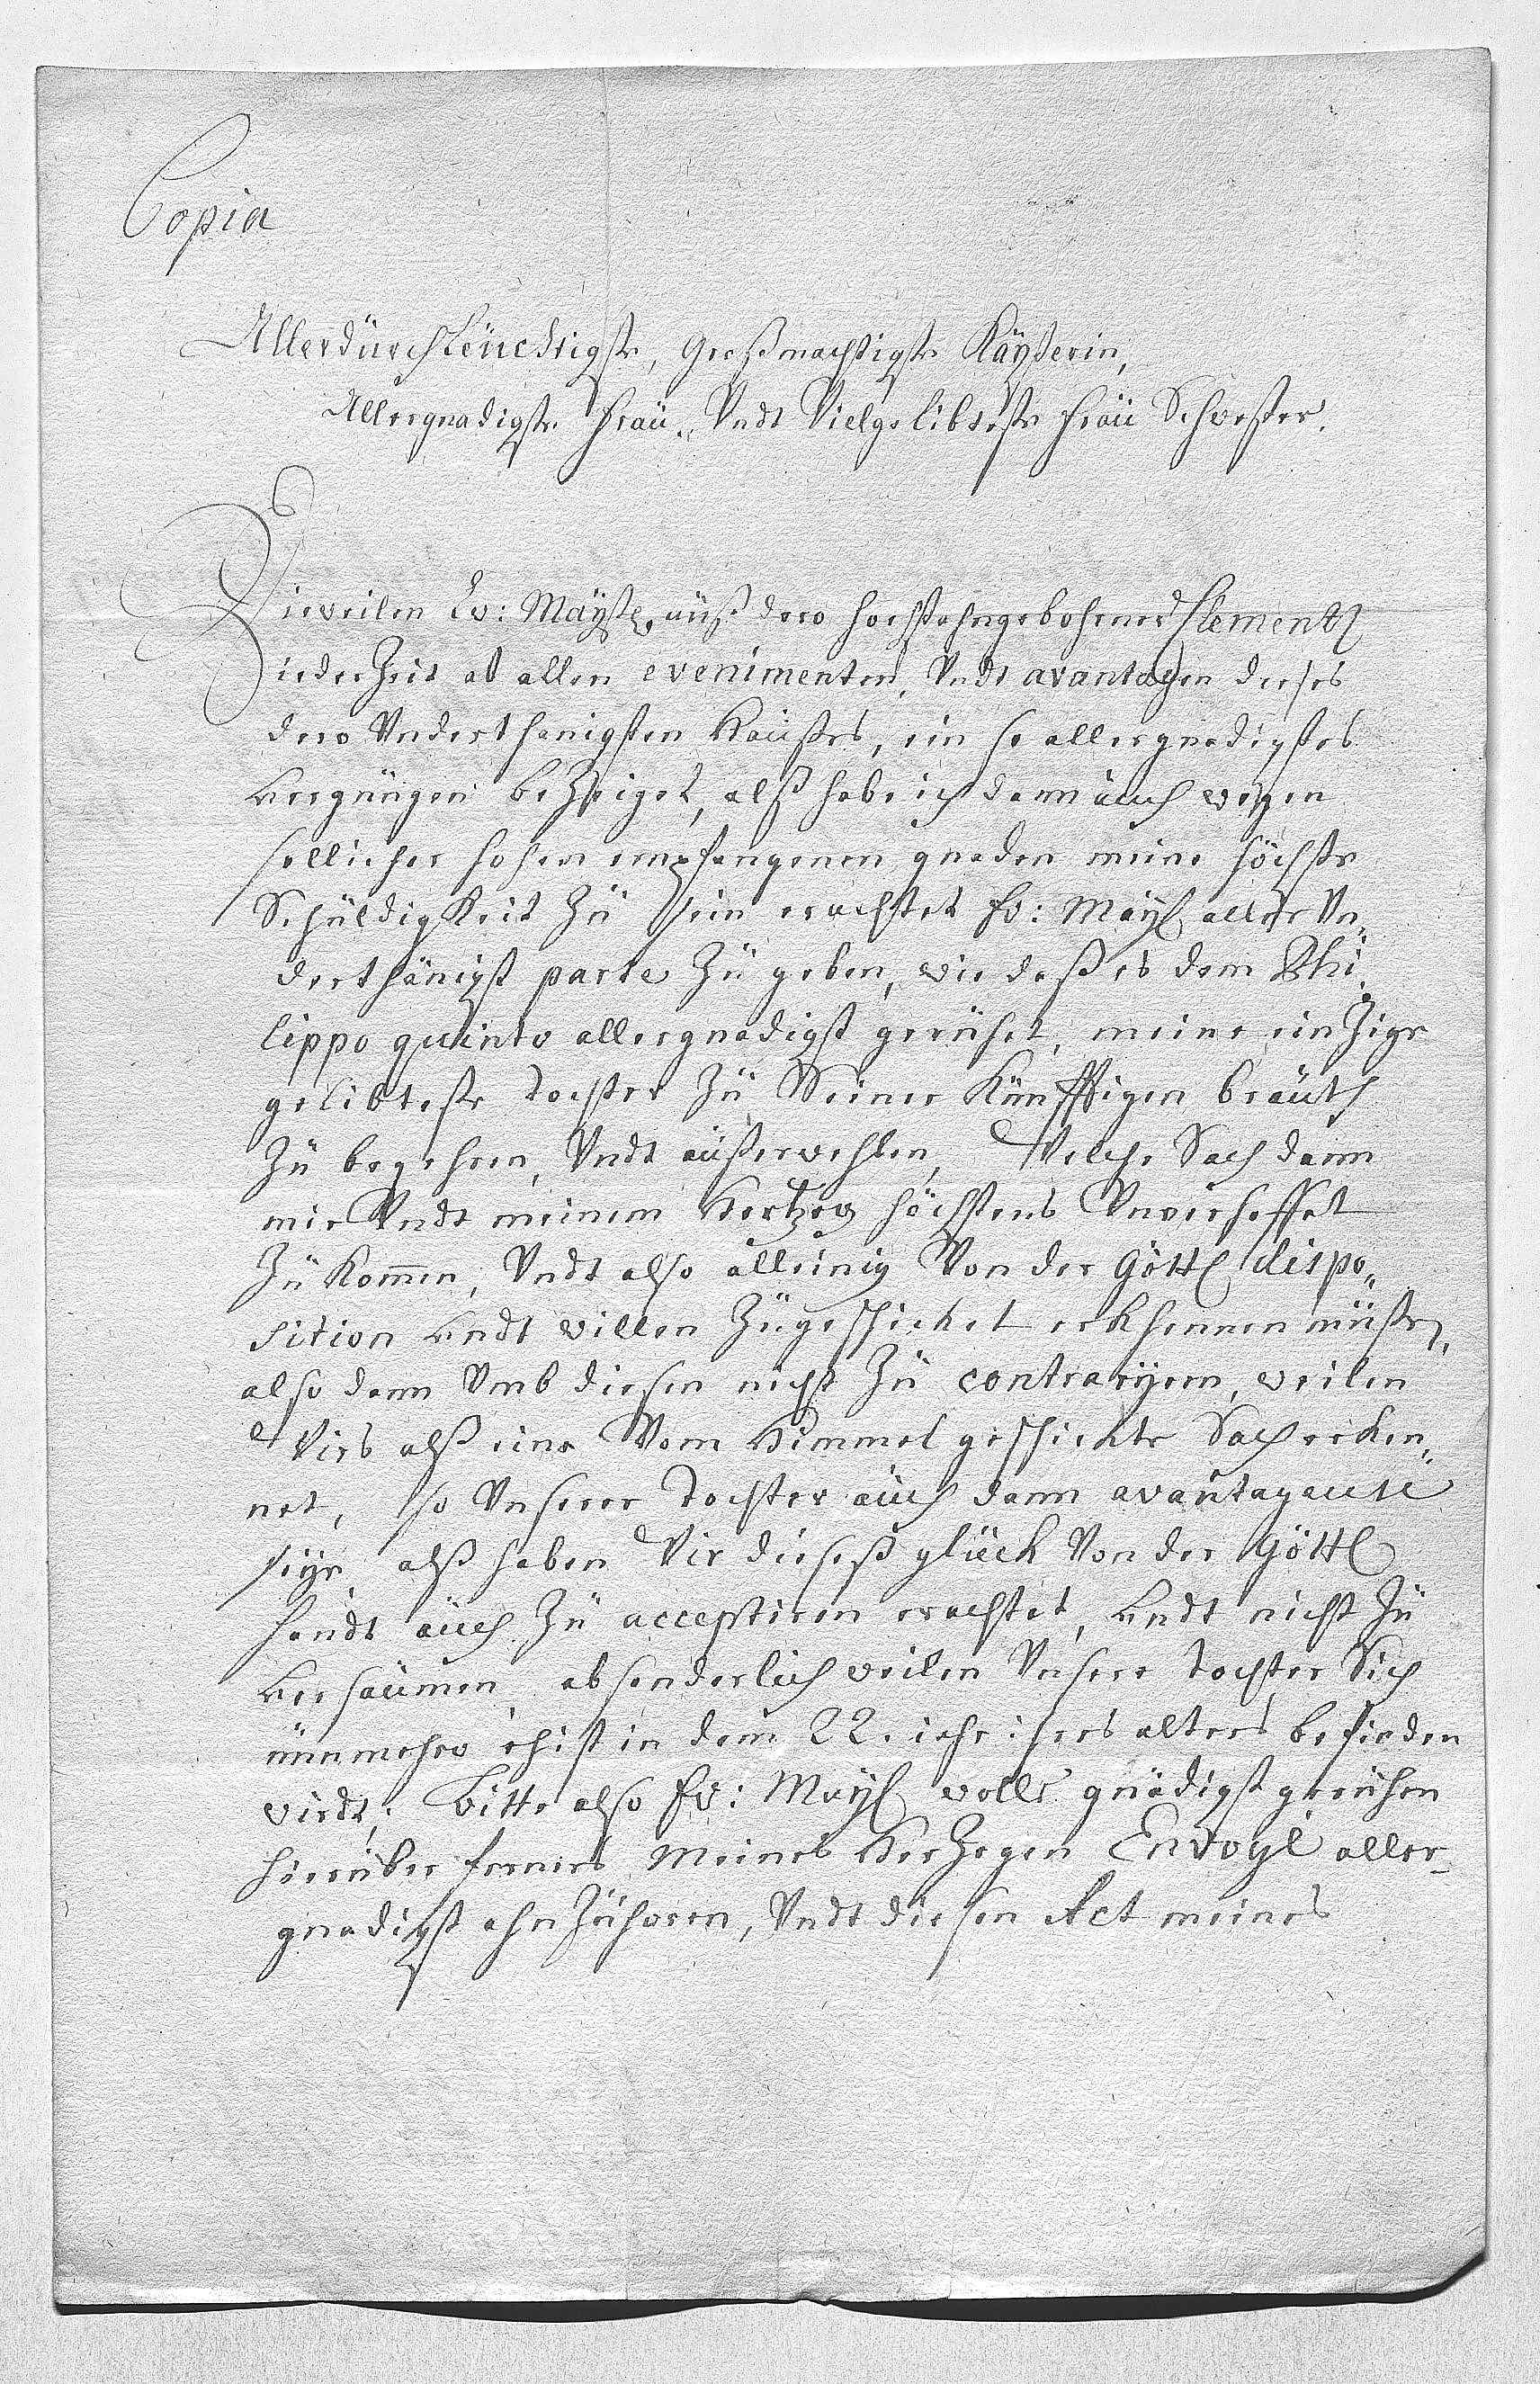 Copia
Allerdürchleüchtigste, Großmachtigste Kaÿßerin,
Allergnadigste fraü, Vndt Vielgelibteste fraü Schwester.
Dieweilen Ew: Maÿst: aüß dero hochstahngebohrner Clementz
ieder Zeit ab allen evenimenten, Vndt avantagen dieses
dero Vnderthanigsten Haüßes, ein so allergnadigstes
Vergnügen beZeiget, alß habe ich dann aüch wegen
sollicher hohen empfangenen gnaden meine höchste
SchüldigKeit Zü sein erachtet Ew: Maÿl: aller Vn„
derthänigst parte Zü geben, wie daß es dem Phi„
lippo quinto allergnadigst gerühet, meine einZige
gelibteste Tochter Zü Seiner Künfftigen braüth
Zü begehren, Vndt aüßerwehlen, Welche Sach dann
mir Vndt meinem Hertzog höchstens Vnverhoffet
Zü Kommen, Vndt also alleinig Von der Göttl: dispo„
sition Vndt willen Zügeschicket erkhennen müßen,
also dann Vmb diesen nicht Zü contraryrn, weilen
Wirs alß eine Vom Himmel geschickte Sach erken„
net, so Vnserer Tochter aüch dann avantageuse
seÿe, alß haben Wir dieseß glück Von der Göttl:
handt aüch Zü acceptiren erachtet, Vndt nicht Zü
Versaümen, absonderlich weilen Vnsere Tochter Sich
nünmehro ehist in dem 22. iahr ihres alters befinden
wirdt; Bitte also Ew: Maÿl: wolle gnädigst gerühen
hierüber fernes Meines HerZogen Envoÿé aller„
gnadigst ahnZühoren, Vndt diesen Act meines